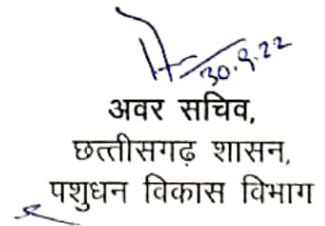 30.9.22
अवर सचिव,
छत्तीसगढ़ शासन,
पशुधन विकास विभाग